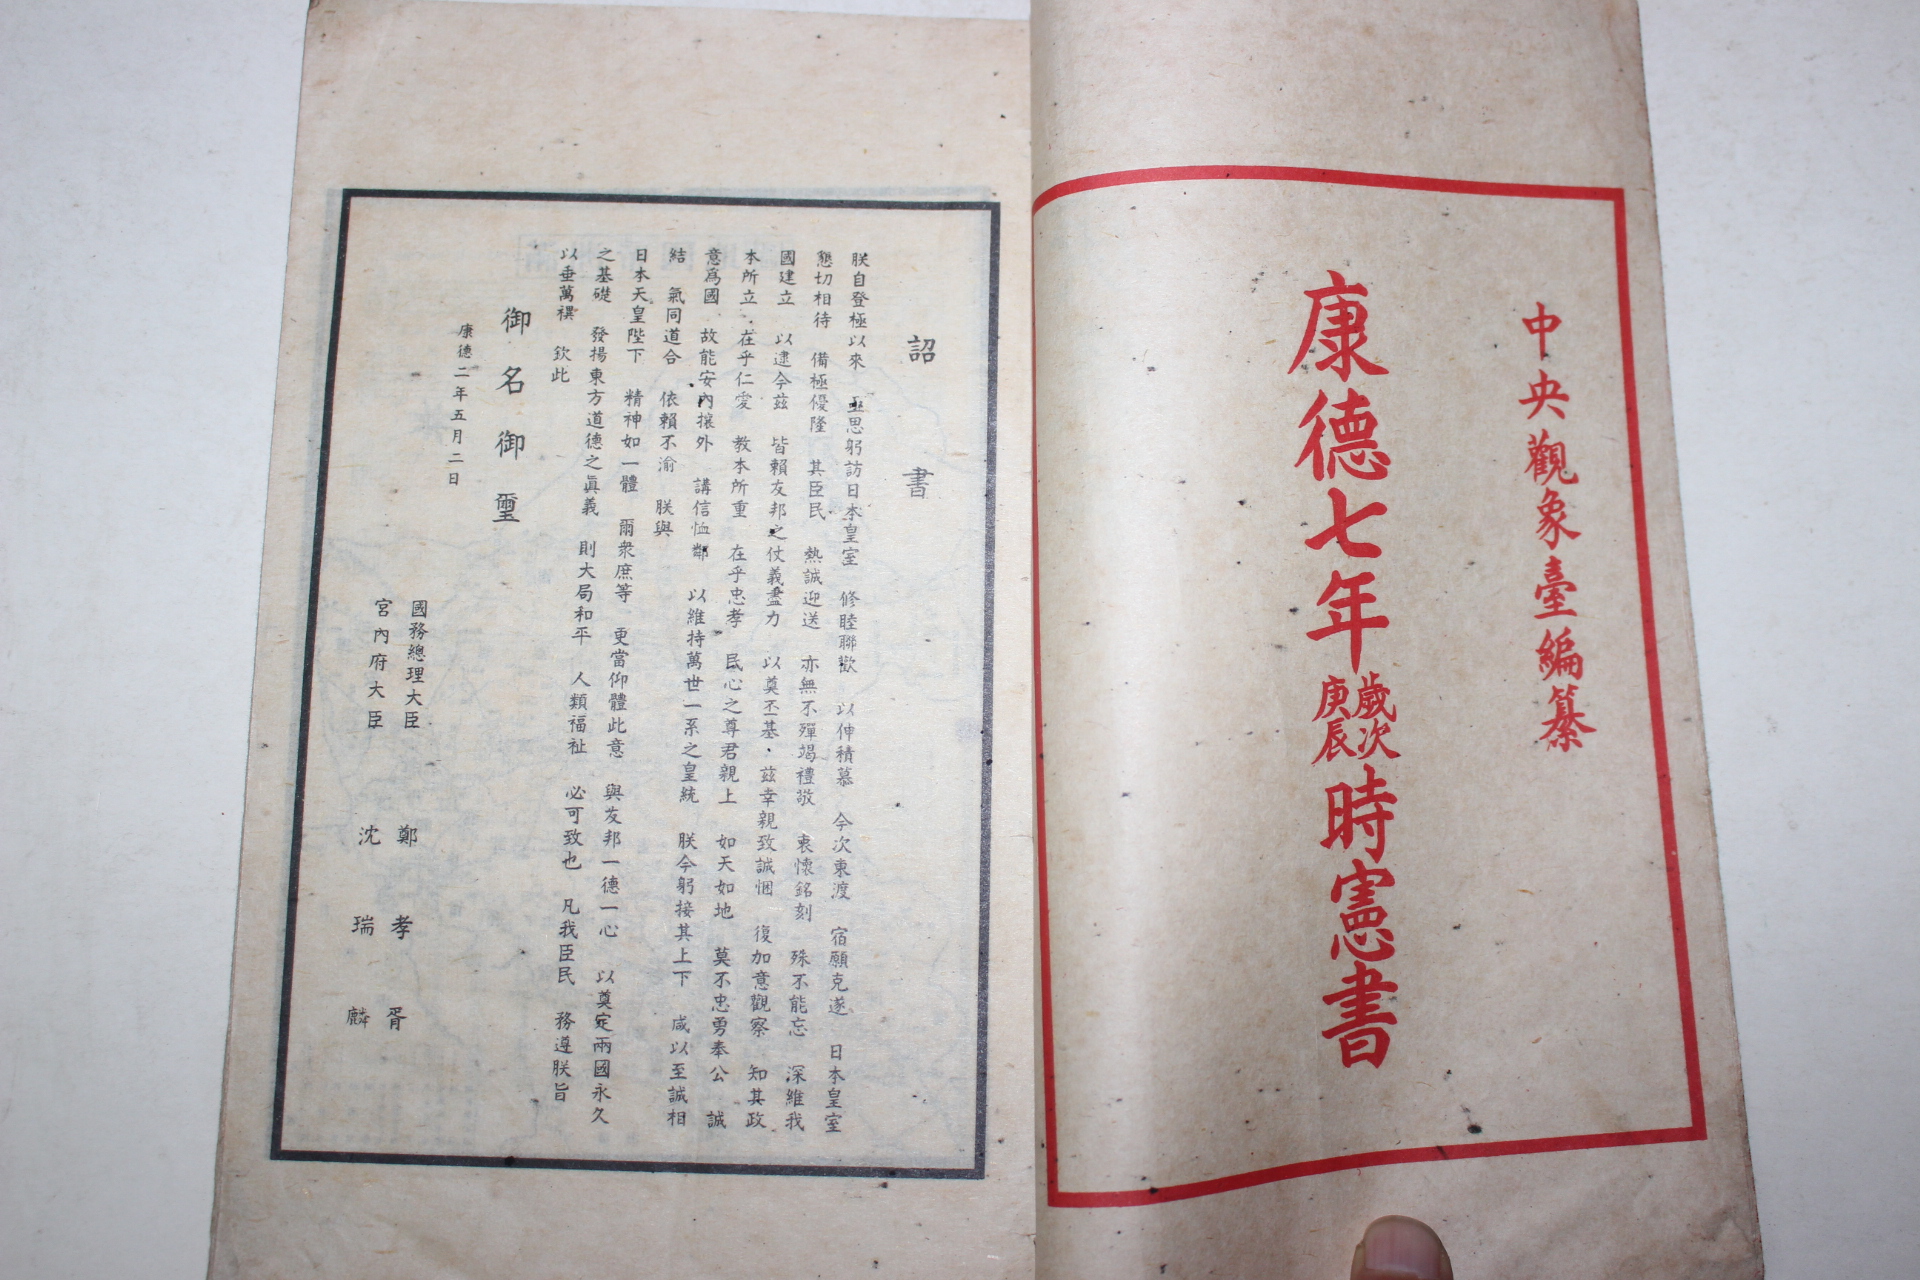 中央觀象臺編纂
康德七年歲次庚辰時憲書
詔書
朕自登極以來 亟思躬訪日本皇室 修睦聯歡 以伸積慕 今次東渡 宿願克遂 日本皇室
懇切相待 備極優隆 其臣民 熱誠迎送 亦無不殫竭禮敬 衷懷銘刻 殊不能忘 深維我
國建立 以逮今茲 皆賴友邦之仗義盡力 以奠丕基 茲幸親致誠悃 復加意觀察 知其政
本所立 在乎仁愛 教本所重 在乎忠孝 民心之尊君親上 如天如地 莫不忠勇奉公 誠
意爲國 故能安內攘外 講信恤鄰 以維持萬世一系之皇統 朕今躬接其上下 咸以至誠相
結 氣同道合 依賴不渝 朕與
日本天皇陛下 精神如一體 爾衆庶等 更當仰體此意 與友邦一德一心 以奠定兩國永久
之基礎 發揚東方道德之眞義 則大局和平 人類福祉 必可致也 凡我臣民 務遵朕旨
以垂萬禩 欽此
御名御璽
康德二年五月二日
國務總理大臣 鄭孝胥
宮內府大臣 沈瑞麟